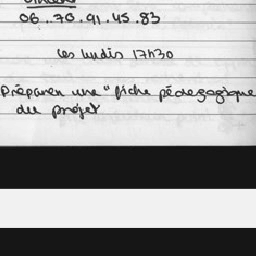 06.70.91.45.83
les lundis 17h30
Préparer une "fiche pédagogique
du projet